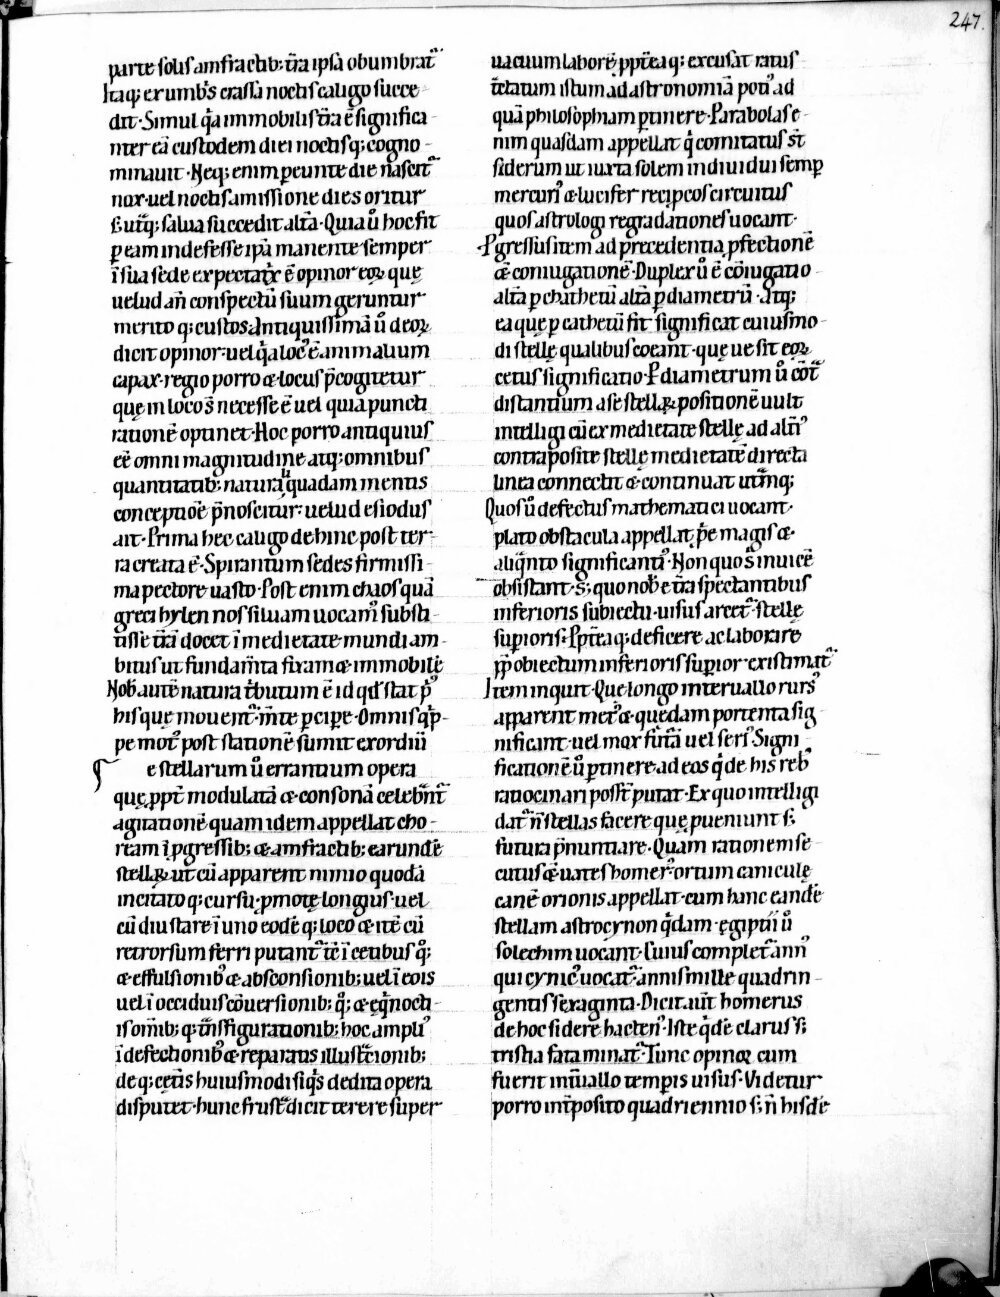 247.
parte solis amfractib; t̄ra ipsā obumbrat᷑
Itaq; ex umbris crassā noctis caligo succe
dit. Simul q̇a immobilis t̄ra ē significa
nter eā custodem diei noctisq; cogno-
minauit. Neq; enim p̱eunte die nascit᷑
nox. uel noctis amissione dies oritur
s; utq̄; salua succedit alt̄a. Quia ů hoc fit
p̱ eam indefesse ipā manente semper
ī sua sede expectatx̄ ē opinor eoꝝ quę
uelud an̄ conspectū suum geruntur
merito q; custos. Antiquissimā ů deoꝝ
dicit opinor. uel q̇a loc᷒ ē animalium
capax. regio porro & locus p̄cogitetur
quę in loco s̄ necesse ē uel quia puncti
rationē optinet. Hoc porro antiquius
eē omni magnitudine atq; omnibus
quantitatib; natura quadam mentis
conceptiōe p̄noscitur. uelud esiodus
ait. Prima hec caligo dehinc post ter-
ra creata ē. Spirantum sedes firmissi-
ma pectore uasto. Post enim chaos quā
greci hylen nos siluam uocam᷒ substi
tisse t̄rā docet ī medietate mundi am-
bitus ut fundam̄ta fixam & immobilē
Nob̄ autē natura t̄butum ē id qd̄ stat p᷒
his que mouent᷑ m̄te p̱cip̱e. Omnis q̄p̱-
pe mot᷒ post stationē sumit exordiū
e stellarum ů errantium opera
quę ppt̄ modulatā & consonā celebr̄nt᷑
agitationē quam idem appellat cho-
ream ī pgressib; & amfractib; earundē
stellaꝝ ut cū apparent nimio quodā
incitato q; cursu pmotę longius. uel
cū diu stare ī uno eodē q; loco & itē cū
retrorsum ferri putant᷑ tē ī cetibus q᷒;
& effulsionib᷒ & absconsionib; uel ī eois
uel ī occiduis cōuersionib; q᷒; & eq̄nocti-
is om̄ib; q; t̄nsfigurationib; hoc ampli᷒
ī defectionib᷒ & reparatis illust̄tionib;
de q; cet̄is huiusmodi siq̇s dedita opera
disputet. hunc frust̄ dicit terere super
uacuum laborē. ppt̄ea q; excusat ratus
t̄ctatum istum ad astronomiā poti᷒ ad
quā philosophiam p̱tinere. Parabolas e-
nim quasdam appellat q̇ comitatus s̄t
siderum ut iuxta solem indiuidui semp̱
mercuri᷒ & lucifer recip̱cos circuitus
quos astrologi regradationes uocant.
Pgressus item ad precedentia pfectionē
& coniugationē. Duplex ů ē cōiugatio
alt̄a p̱ cathetū alt̄a p̱ diametrū. Atq;
ea que p̱ cathetū fit significat cuiusmo-
di stellę qualibus coeant. que ue sit eoꝝ
cetus significatio. P̱ diametrum ů cōt᷑
distantium a se stellaꝝ positionē uult
intelligi cū ex medietate stellę ad alt̄i᷒
contraposite stellę medietatē directa
linea connectit & continuat utm̄q;
Quos ů defectus mathematici uocant.
plato obstacula appellat. p̄e magis &
aliq̇nto significanti᷒. Non quo s̄ inuicē
obsistant. s; quo nob̄ e t̄ra spectantibus
inferioris subiectu. uisus arcet᷑ stellę
sup̱ioris. Ppt̄ea q; deficere ac laborare
pp̱ obiectum inferioris sup̱ior existimat᷑.
Item inquit. Que longo interuallo rurs᷒
apparent met᷒ & quędam portenta sig
nificant. uel mox fut̄a uel seri᷒. Signi
ficationē ů p̱tinere ad eos q̇ de his reb᷒
ratiocinari possint putat. Ex quo intelligi
dat᷑ n̄ stellas facere que pueniunt s;
futura p̄nuntiare. Quam rationem se
cutus & uates homer᷒. ortum caniculę
canē orionis appellat. cum hanc eandē
stellam astrocynon q̇dam. egiptii ů
solechim uocant. Cuius complet᷑ ann᷒
qui cynic᷒ uocat᷑. annis mille quadrin-
gentis sexaginta. Dicit aut̄ homerus
de hoc sidere hacten᷒. Iste q̇dē clarus s;
tristia fata minat᷑. Tunc opinor cum
fuerit int̄uallo temp̱is uisus. Videtur
porro int̄posito quadriennio s; n̄ hisdē